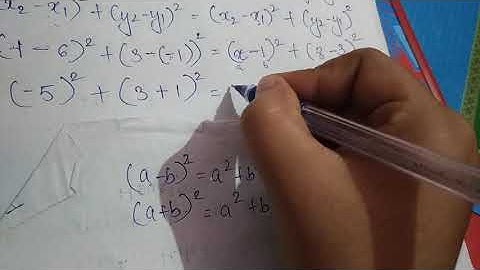 x₂-x₁)² + (y₂-y₁)² = (x₂-x₁)² + (y₂-y₁)²
(1 - 6)² + (3-(-1))² = (x-1)² + (3-3)²
(-5)² + (3+1)² =
(a-b)² = a² + b
(a+b)² = a² + b